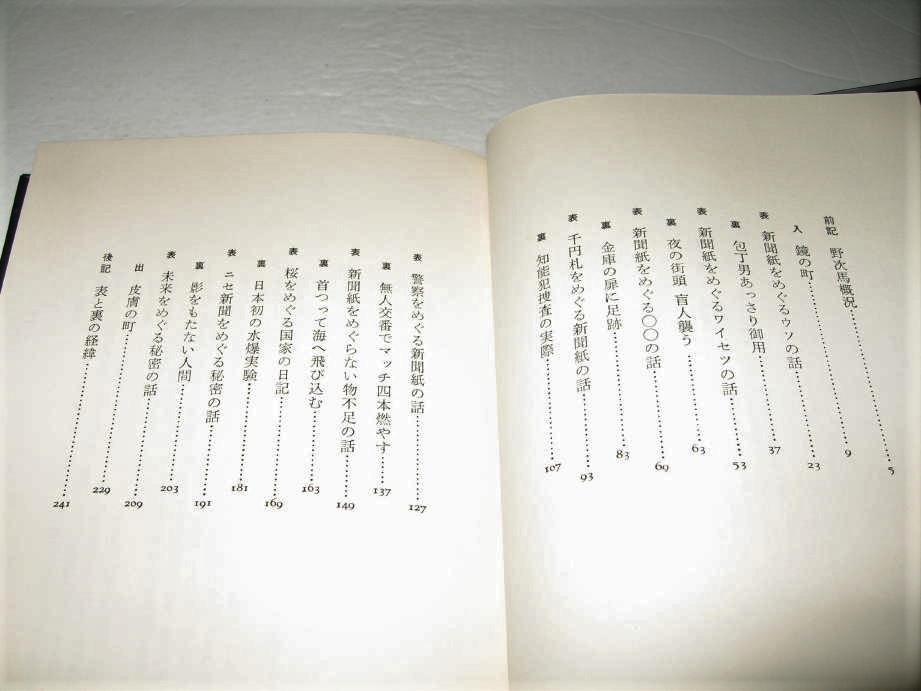 前記 野次馬概況……5
入 鏡の町……9
表 新聞紙をめぐるウソの話……23
裏 包丁男あっさり御用……37
表 新聞紙をめぐるワイセツの話……53
裏 夜の街頭 盲人襲う……63
表 新聞紙をめぐる〇〇の話……69
裏 金庫の扉に足跡……83
表 千円札をめぐる新聞紙の話……93
裏 知能犯捜査の実際……107
表 警察をめぐる新聞紙の話……127
裏 無人交番でマッチ四本燃やす……137
表 新聞紙をめぐらない物不足の話……149
裏 首つって海へ飛び込む……163
表 桜をめぐる国家の日記……169
裏 日本初の水爆実験……181
表 ニセ新聞をめぐる秘密の話……191
裏 影をもたない人間……203
表 未来をめぐる秘密の話……209
出 皮膚の町……229
後記 表と裏の経緯……241